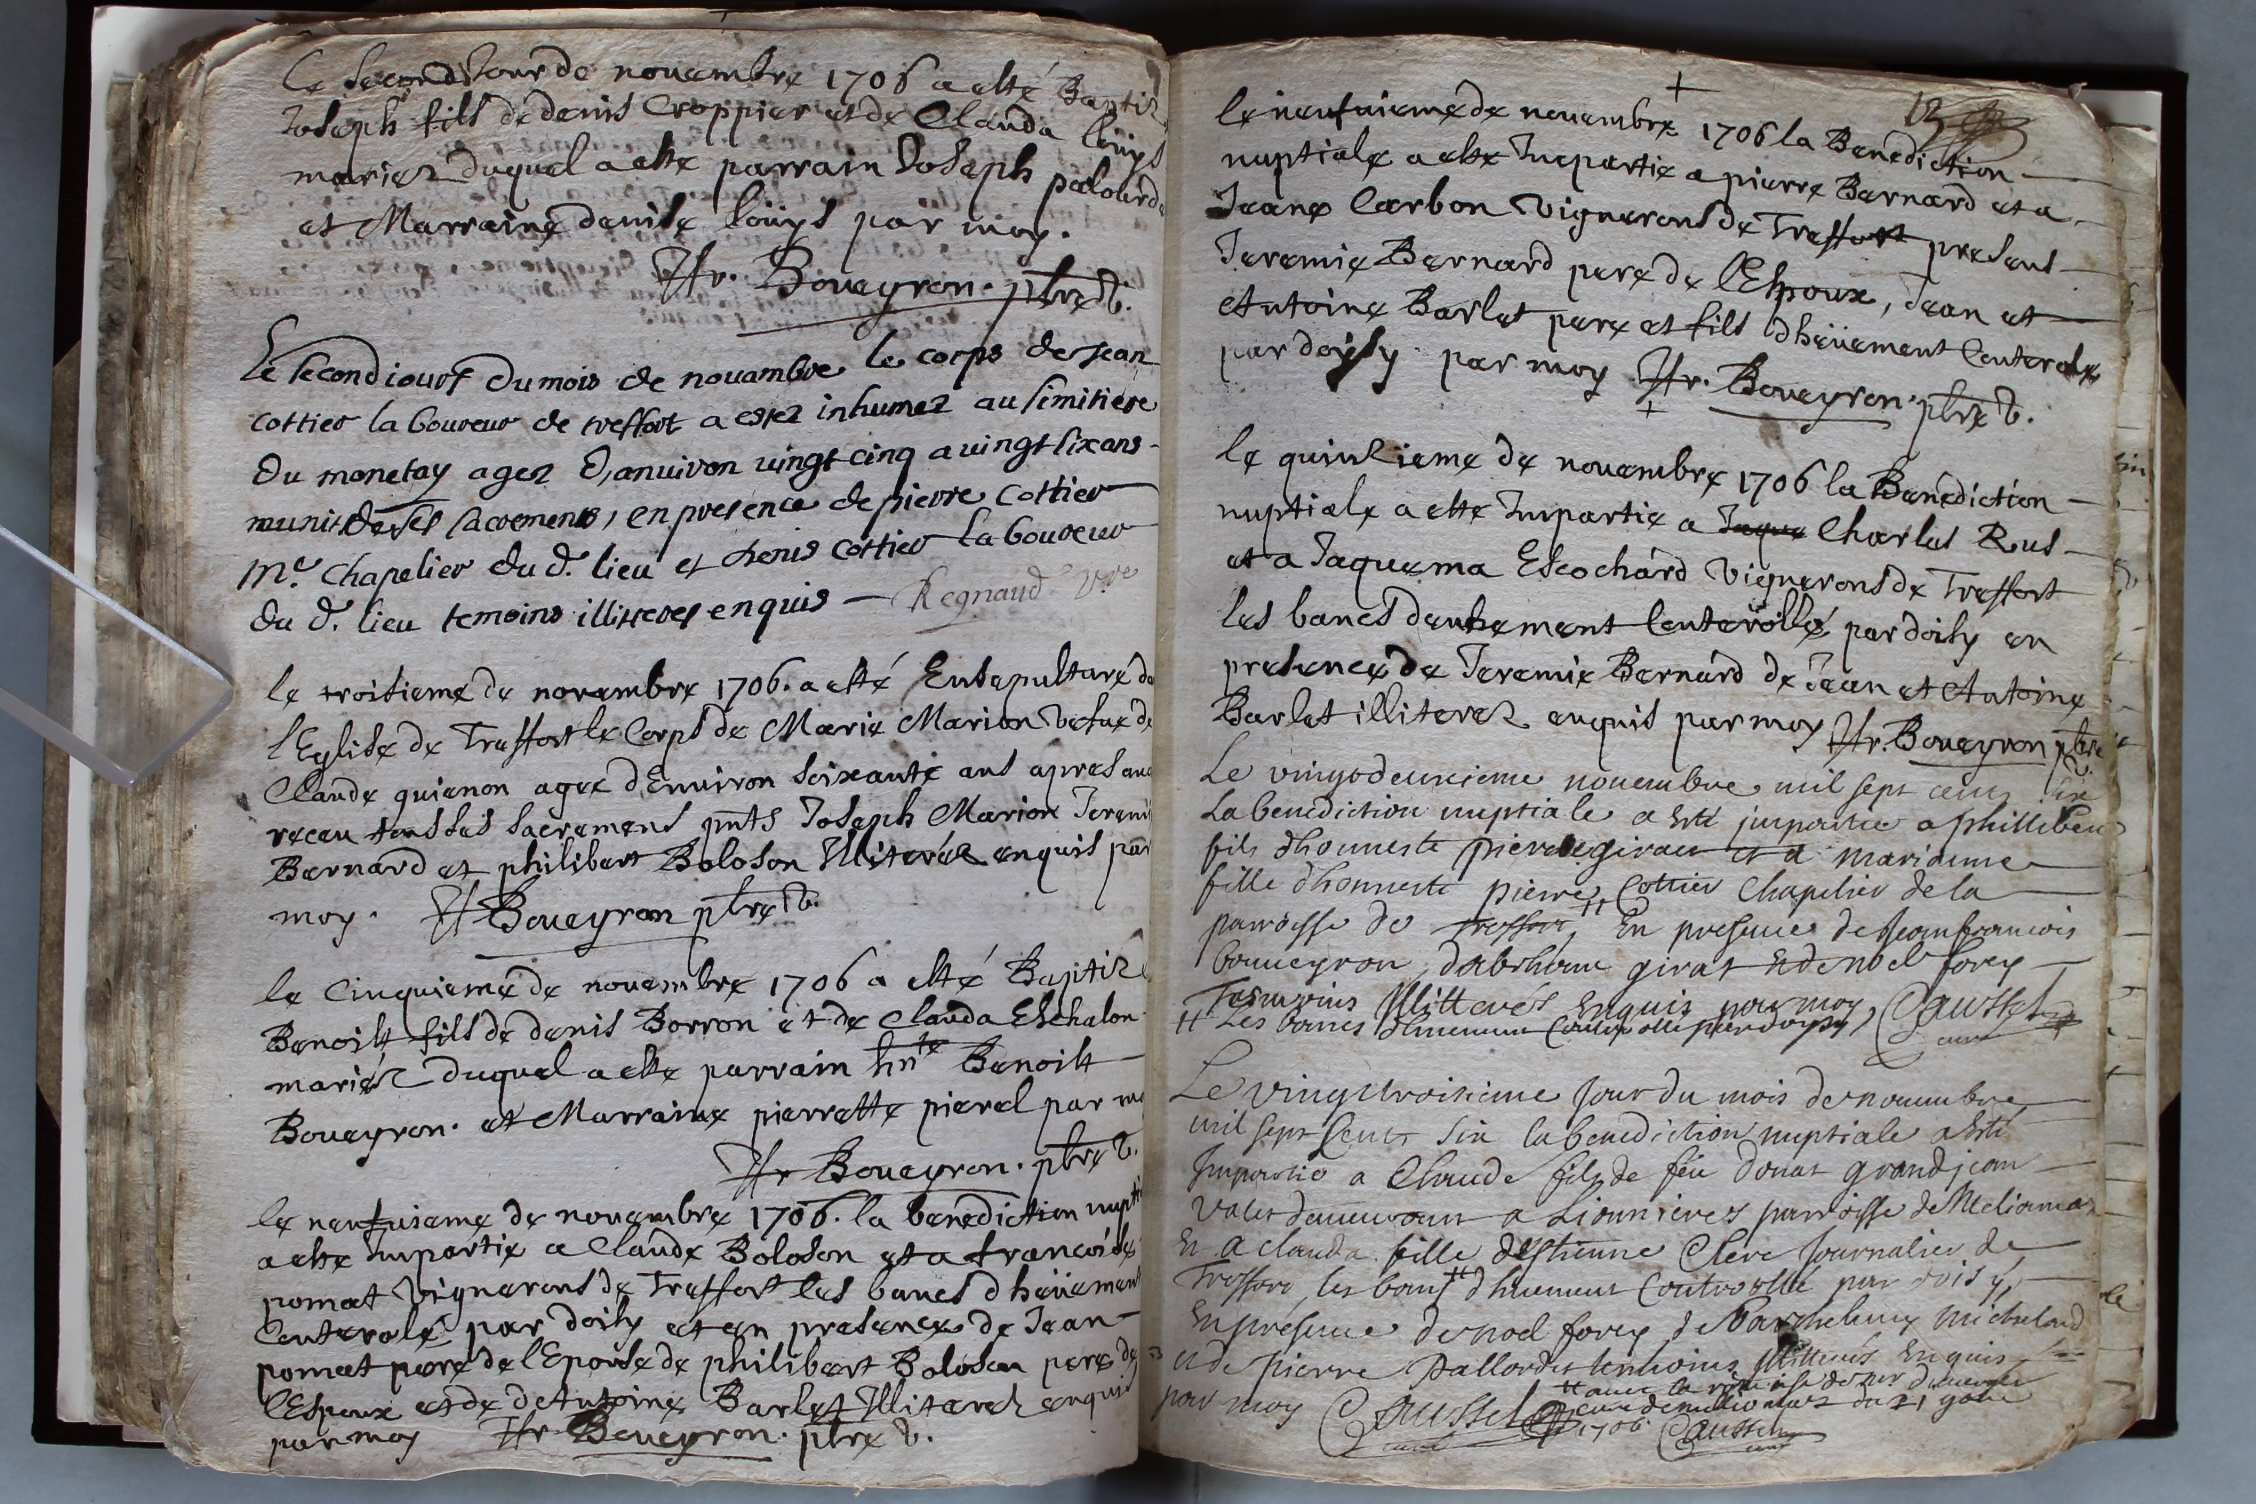 Le second Jour de novembre 1706 a esté Baptiz
Joseph fils de denis Croppier et de Clauda loüys
mariez duquel a esté parrain Joseph palourde
et Marraine denise loüys par moy.
Fr. Boueyron. ptre v.
Le second jour du mois de nouambre le corps de Jean
cottier laboureur de treffort a estez inhumez au simitiere
du monetay agez d'anuiron vingt cinq a vingt six ans
munit de ses sacrements, en presence de pierre Cottier
me. chapelier du d. lieu et denis cottier laboureur
du d. lieu temoins illitteres enquis — Regnaud vre
le troisieme de novembre 1706. a esté Ensepulturé da
l'Eglise de Treffort le Corps de Marie Marion vefue de
Claude quienon agee d'Enuiron soixante ans apres auo
receu tous ses sacremens pnts Joseph Marion Jeremi
Bernard et philibert Boloson Illiterez enquis par
moy. Fr Boueyron ptre v.
le Cinquieme de novembre 1706 a esté Baptize
Benoist fils de denis Borron et de Clauda Eschalon
mariéz duquel a esté parrain hnte Benoist
Boueyron. et Marraine pierrette pierel par mo
Fr Boueyron. ptre v.
le neufuieme de novembre 1706. la benediction nupti
a esté Impartie a Claude Boloson et a francoise
pomat vignerons de Treffort les bancs d heüement
Conterolé par doisy et en presence de Jean
pomat pere de l'Epouse de philibert Boloson pere de
l'Espoux et de Antoine Barlet Illiterez enquis
par moy Fr. Boueyron. ptre v.
12
le neufuieme de nouembre 1706 la Benediction
nuptiale a esté Impartie a pierre Bernard et a
Jeane Carbon vignerons de Treffort present
Jeremie Bernard pere de l'Espoux, Jean et
Antoine Barlet pere et fils dheüement Conterolés
par doysy par moy Fr. Boueyron. ptre v.
le quinzieme de nouembre 1706 la Benediction
nuptiale a esté Impartie a Jaque Charles Rus
et a Jaquema Escochard vignerons de Treffort
les bancs deuhement Conterollé par doisy en
presence de Jeremie Bernard de Jean et Antoine
Barlet illiterez enquis par moy Fr. Boueyron ptre
v.
Le vingtdeuxieme nouembre mil sept cent six
La benediction nuptiale a esté impartie a phillibert
fils d'honneste pierre girau et a marianne
fille d'honneste pierre Cottier Chapelier de la
parroisse de treffort, ++ En presence de Jeanfrancois
boüueyron, girat et de noel forey
Tesmoins Illitterés enquis par moy, Caussel
++ Les bances dhuement Controollé par doysy, curé
Le vingttroisieme Jour du mois de nouembre
mil sept cent six la benediction nuptiale a esté
Impartie a Claude fils de feu donat grandjean
valet demeurant a Lionnieres parroisse de Meliona
Et a clauda fille d'Estienne Clerc Journalier de
Treffort, les bans ++ dhuement Controollé par doisy,
En présence de noel forey de Barthelemy michelard
et de pierre Pallordet temoins Illitterés Enquis
par moy Caussel curé ++ auec la remise de
curé de du 21
1706 Caussel
curé